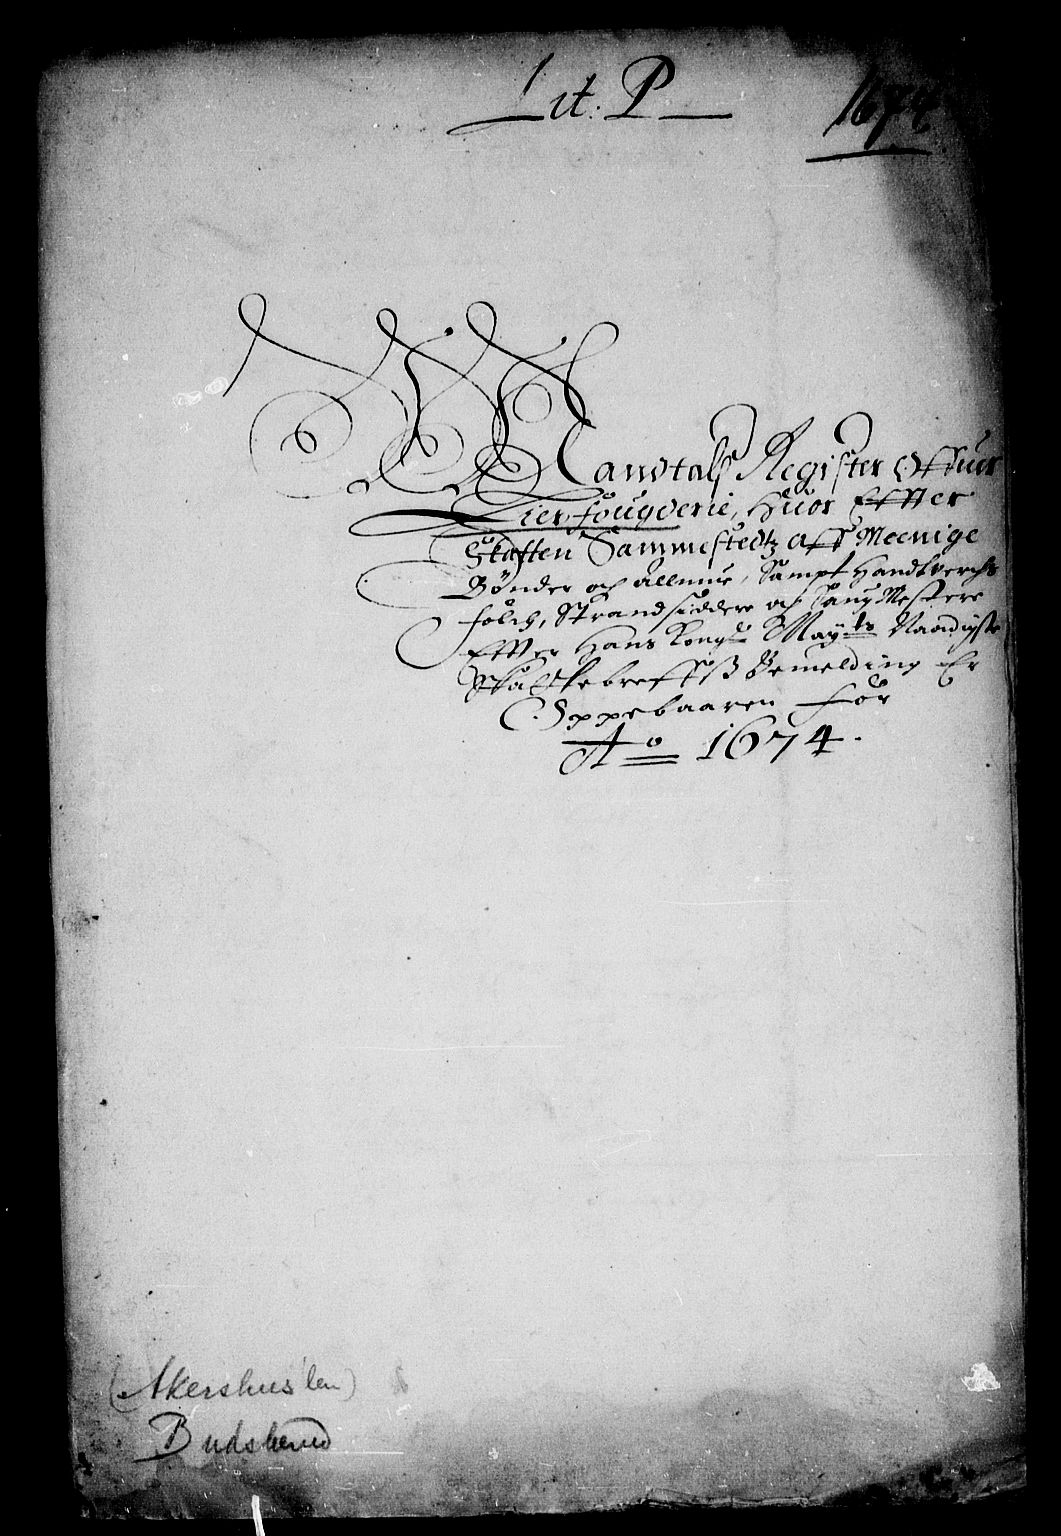 Lit: P
1674
Mandtals Register Offuer
Lier fougderie, Huor Effter
Skatten Sammestedtz aff Meenige
Bønder och Allmue, Sampt Handtverchs
folch, Strandsiddere och Saug Mestere
Effter Hans Kongl: Mayts Naadigste
Skattebreffs Bemelding Er
Oppebaaren for
Ao 1674.
(Akershus len)
Budskerud